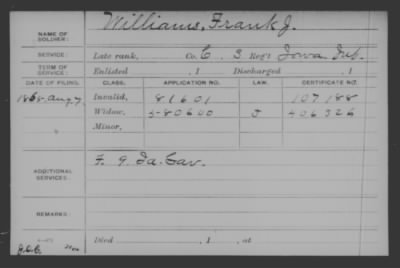 Williams, Frank J.
NAME OF SOLDIER:
SERVICE: Late rank, Co. E, 3 Reg't Iowa Inf.
TERM OF SERVICE: Enlisted , 1 Discharged , 1
DATE OF FILING. CLASS. APPLICATION NO. LAW. CERTIFICATE NO.
1865 Aug 7 Invalid, 81601 107188
Widow, 580600 J 406326
Minor,
ADDITIONAL SERVICES: F. 9. Ia. Cav.
REMARKS:
Died , 1 , at